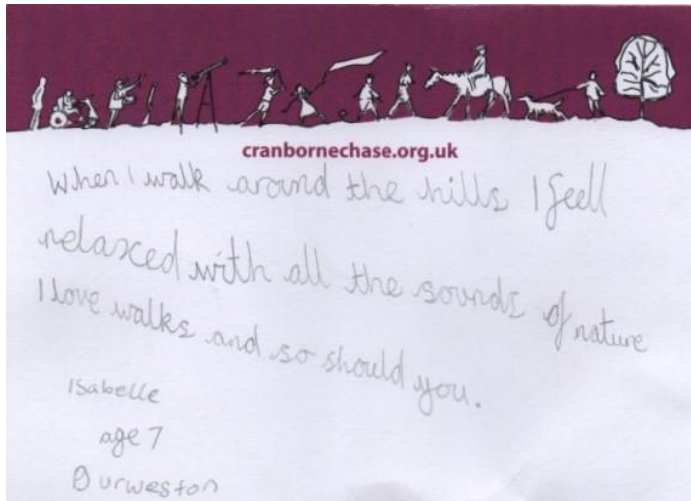 cranbornechase.org.uk
When I walk around the hills I feell
relaxced with all the sounds of nature
I love walks and so should you.
Isabelle
age 7
Durweston